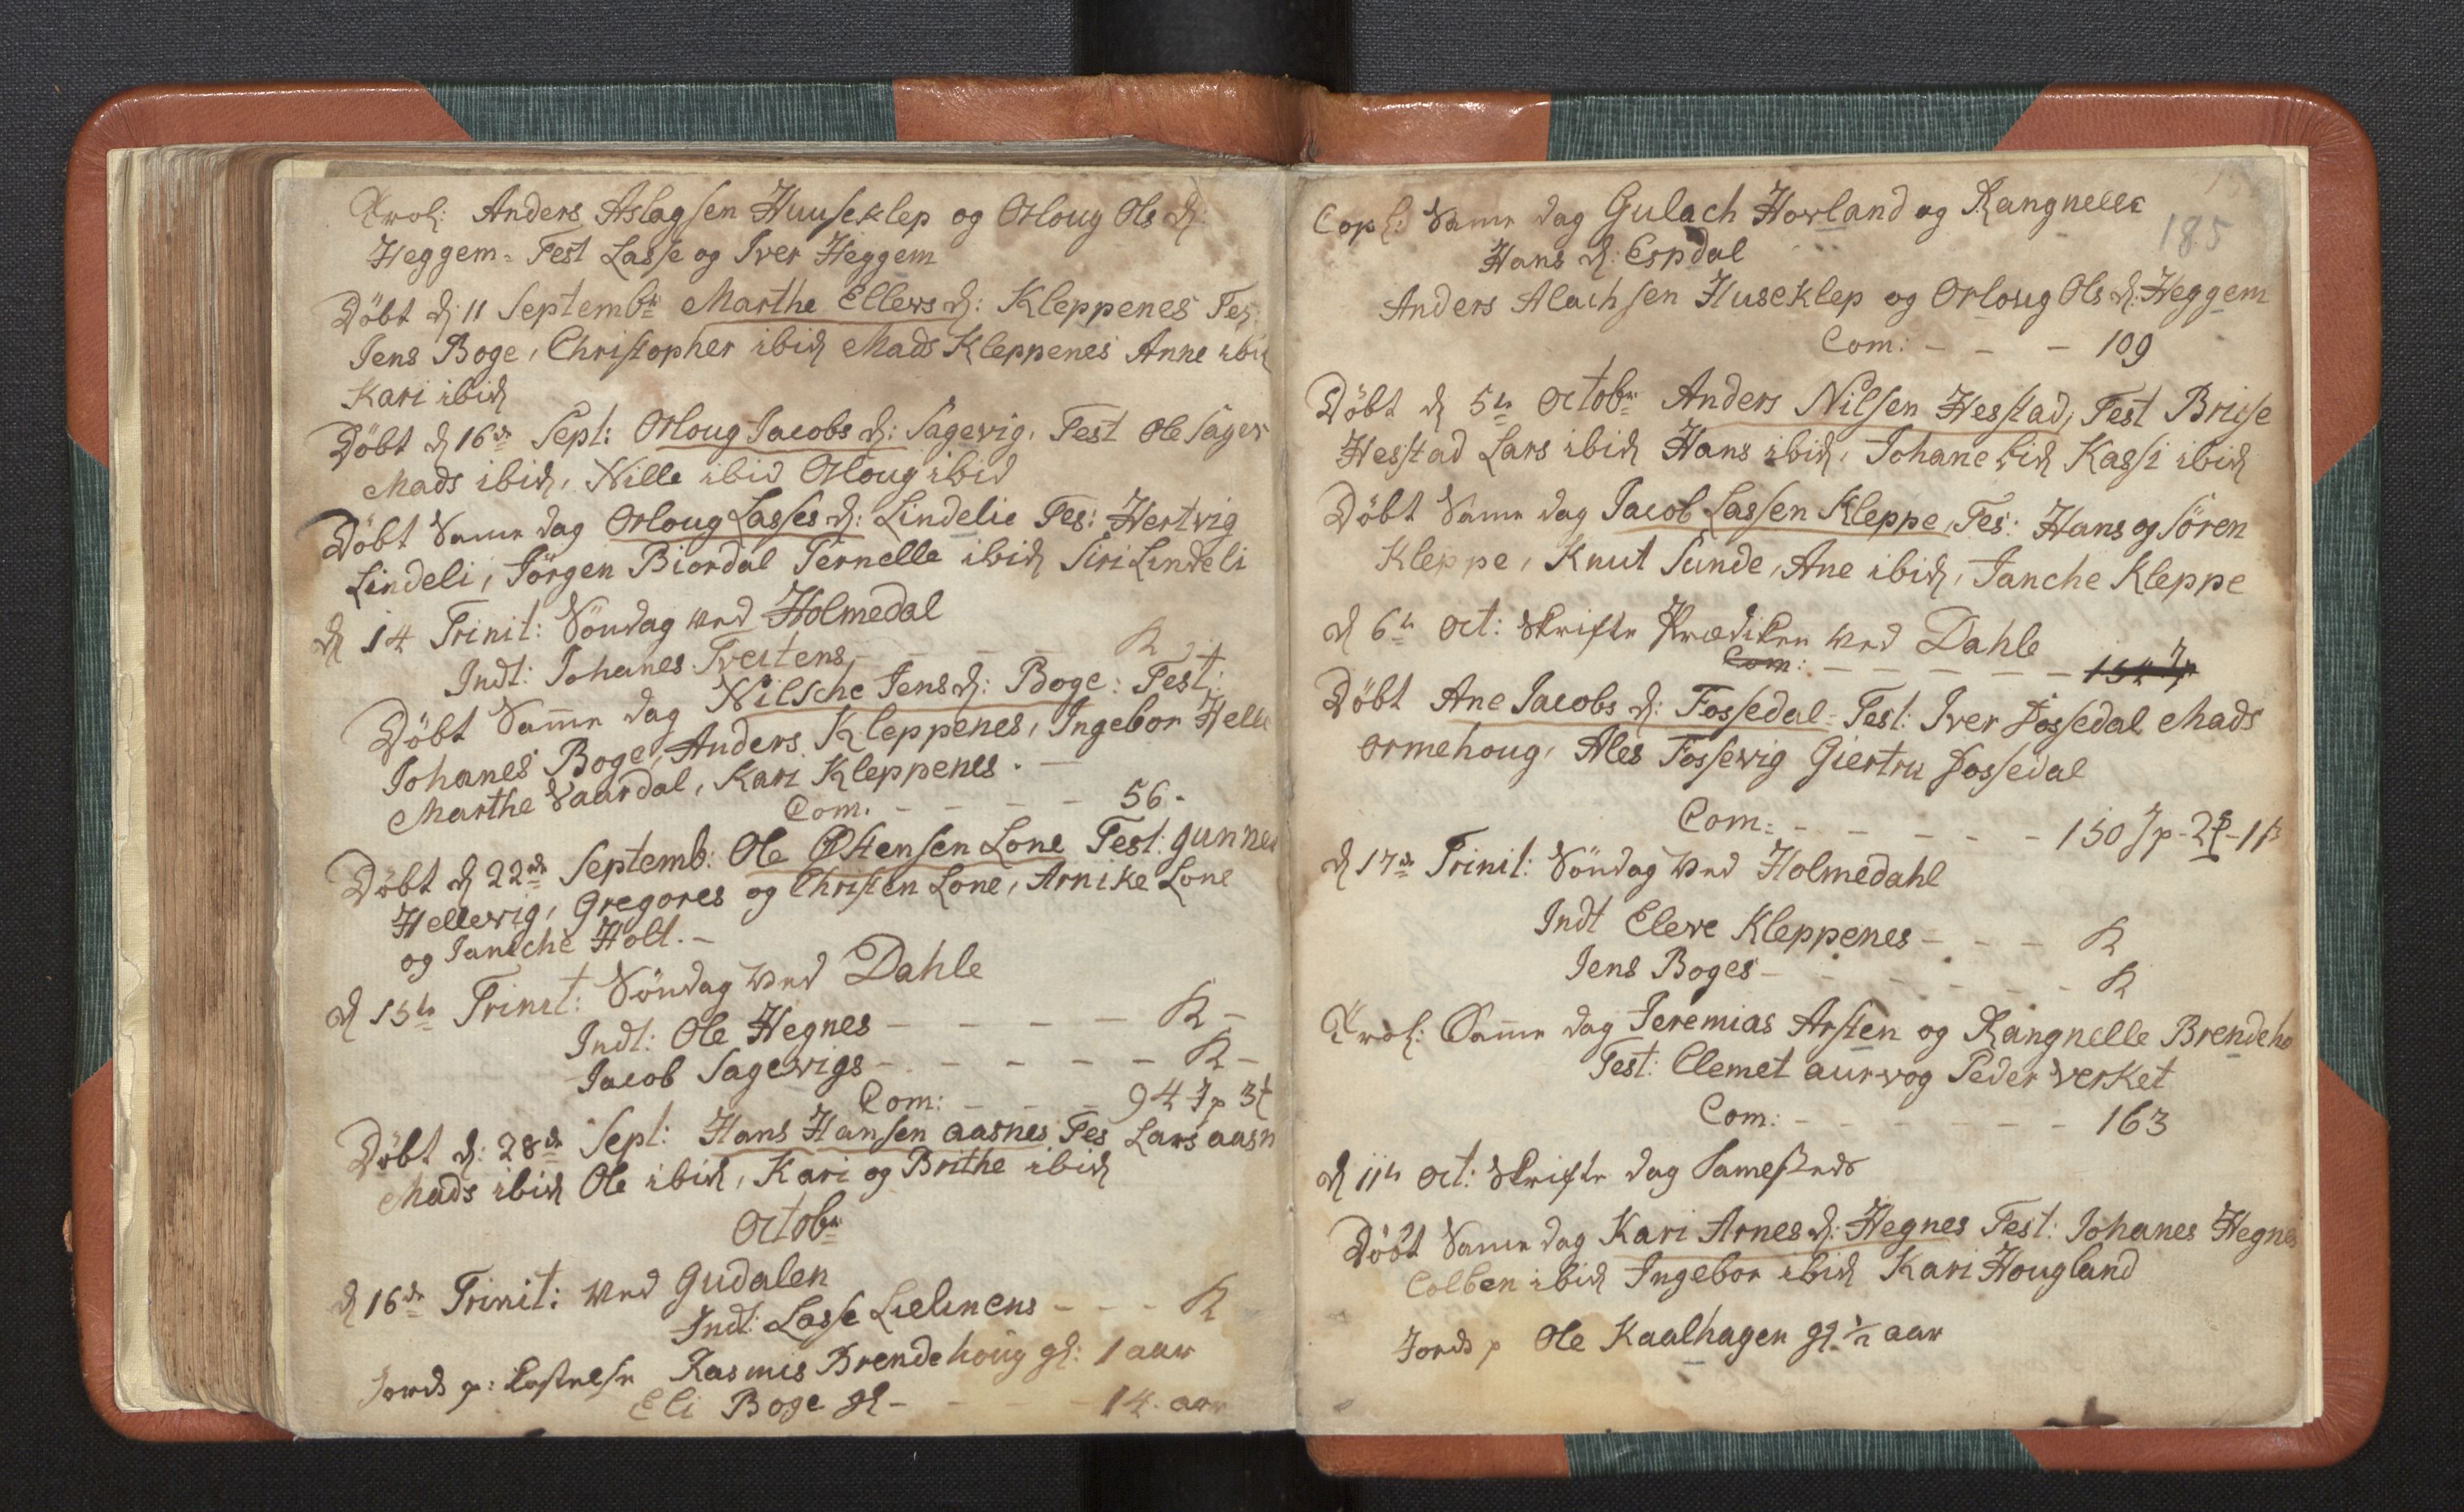 Trol: Anders Aslagsen Huuseklep og Orloug Ols d:
Heggem = Test Lasse og Iver Heggem
Döbt d: 11 Septembr Marthe Ellers d: Kleppenes Tes:
Jens Boge, Christopher ibid Mads Kleppenes Anne ibid
Kari ibid
Döbt d 16de Sept: Orloug Jacobs d: Sagevig, Test Ole Sagev
Mads ibid, Nille ibid Orloug ibid
Döbt Samme dag Orloug Lasses d: Lindelie Tes: Hertvig
Lindeli, Jörgen Biordal Pernelle ibid Siri Lindeli
d 14 Trinit: Söndag ved Holmedal
Indt: Johanes Tveitens - - - - K
Döbt Samme dag Nilsche Jens d: Boge: Test:
Johanes Boge, Anders Kleppenes, Ingebor Helle
Marthe Vaardal, Kari Kleppenes. -
Com. - - - - 56 -
Döbt d 22de Septemb: Ole Östensen Lone Test: gunner
Hellevig, Gregores og Christen Lone, Arnike Lone
og Janiche Holt. -
d 15te Trinit: Söndag ved Dahle
Indt: Ole Hegnes - - - - K -
Jacob Sagevigs - - - - - K -
Com: - - - 94 Jp 3t
Döbt d: 28de Sept: Hans Hansen aasnes Tes Lars aasn
Mads ibid Ole ibid, Kari og Brithe ibid
Octobr
d 16de Trinit: ved Gudalen
Indt: Lasse Lielinens - - - K
Jords p: Kastelse Rasmis Brendehoug gl: 1 aar
Eli Boge gl - - - - 14 aar
185
Copl: Samme dag Gulach Hovland og Rangnelle
Hans d: Espdal
Anders Alachsen Huseklep og Orloug Ols d: Heggem
Com: - - - 109
Döbt d 5te Octobr Anders Nilsen Hestad, Test Bricse
Hestad Lars ibid Hans ibid, Johane bid Kassi ibid
Döbt Samme dag Jacob Lassen Kleppe, Tes: Hans og Sören
Kleppe, Knut Sunde, Ane ibid, Janche Kleppe
d 6te Oct: Skrifte Prædiken ved Dahle
Com: - - - - -
Döbt Ane Jacobs d: Fossedal = Test: Iver Fossedal Mads
Ormehoug, Ales Fossevig Giertru Fossedal
Com: - - - - - - 150 Jp - 2 - 1
d 17de Trinit: Söndag ved Holmedahl
Indt Eleve Kleppenes - - - K
Jens Boges - - - - - - K
Trol: Samme dag Jeremias Arsten og Rangnelle Brendeho
Test: Clemet aurvog Peder Verket
Com: - - - - - - 163
d 11te Oct: Skrifte dag Samesteds
Döbt Samme dag Kari Arnes d: Hegnes Test: Johanes Hegnes
Colben ibid Ingebor ibid Kari Hougland
Jords p Ole Kaalhagen gl: ½ aar